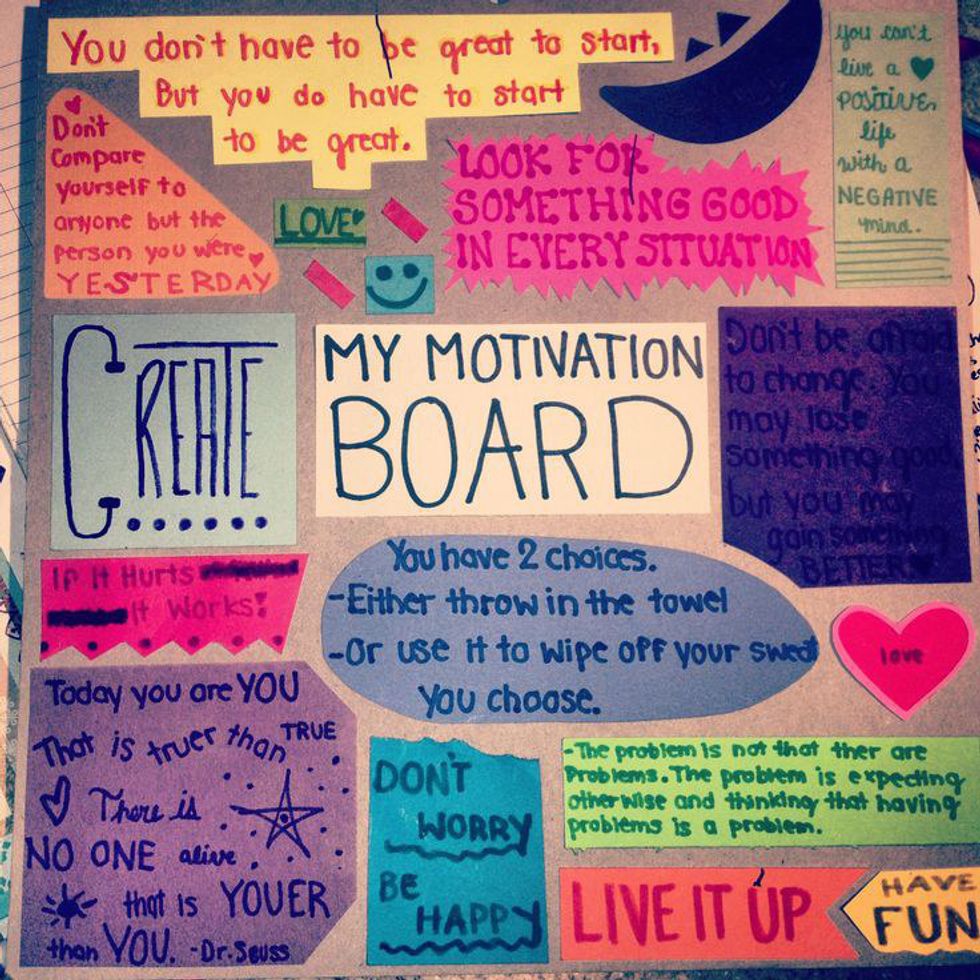 You don't have to be great to start,
But you do have to start
to be great.
you can't
live a
POSITIVE,
life
with a
NEGATIVE
mind.
Don't
Compare
yourself to
anyone but the
person you were
YESTERDAY
LOVE
LOOK FOR
SOMETHING GOOD
IN EVERY SITUATION
CREATE
MY MOTIVATION
BOARD
Don't be afraid
to change. You
may lose
something good,
but you may
gain something
BETTER
If It Hurts
It Works!
You have 2 choices.
-Either throw in the towel
-Or use it to wipe off your sweat
You choose.
love
Today you are YOU
That is truer than TRUE
There is
NO ONE alive
that is YOUER
than YOU. -Dr. Seuss
DON'T
WORRY
BE
HAPPY
-The problem is not that ther are
Problems. The problem is expecting
otherwise and thinking that having
problems is a problem.
LIVE IT UP
HAVE
FUN